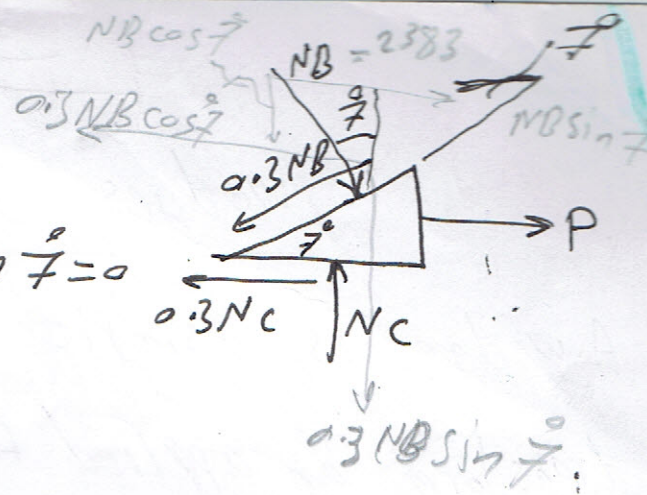 NB cos 7°
NB = 2383
7°
0.3NB cos 7°
7°
NB sin 7
0.3NB
7°
P
7° = 0
0.3NC
NC
0.3NB sin 7°